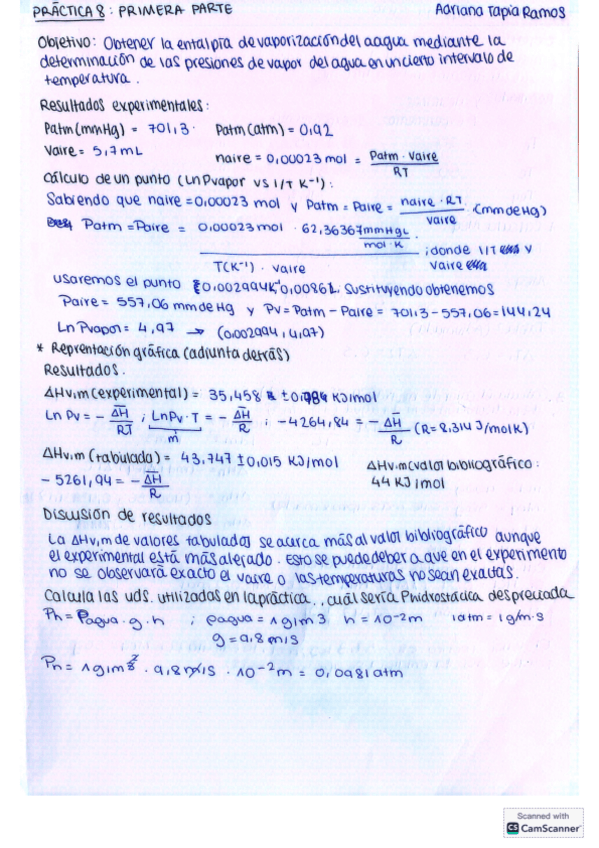 PRÁCTICA 8: PRIMERA PARTE Adriana Tapia Ramos
Objetivo: Obtener la entalpía de vaporización del aagua mediante la
determinación de las presiones de vapor del agua en un cierto intervalo de
temperatura.
Resultados experimentales:
Patm (mmHg) = 701,3. Patm (atm) = 0,92
Vaire = 5,7 mL naire = 0,00023 mol = Patm · Vaire / RT
Cálculo de un punto (Ln Pvapor vs 1/T K⁻¹):
Sabiendo que naire = 0,00023 mol y Patm = Paire = naire · RT / Vaire (mm de Hg)
Patm = Paire = 0,00023 mol · 62,36367 mmHg L / mol · K
T(K⁻¹) · Vaire ; donde 1/T y Vaire
usaremos el punto 0,002994 K⁻¹, 0,0086 L. Sustituyendo obtenemos
Paire = 557,06 mm de Hg y Pv = Patm - Paire = 701,3 - 557,06 = 144,24
Ln Pvapor = 4,97 → (0,002994, 4,97)
* Reprentación gráfica (adjunta detrás)
Resultados.
ΔHv,m (experimental) = 35,458 ± KJ/mol
Ln Pv = - ΔH / RT ; Ln Pv · T = - ΔH / R ; -4264,84 = - ΔH / R (R = 8,314 J/molK)
m
ΔHv,m (tabulada) = 43,747 ± 0,015 KJ/mol ΔHv,m (valor bibliográfico:
-5261,94 = - ΔH / R 44 KJ/mol
Discusión de resultados
La ΔHv,m de valores tabulados se acerca más al valor bibliográfico aunque
el experimental está más alejado. Esto se puede deber a que en el experimento
no se observará exacto el Vaire o las temperaturas no sean exactas.
Calcula las uds. utilizadas en la práctica., cuál sería Phidrostática despreciada
Ph = ρagua · g · h ; ρagua = 1 g/m3 h = 10⁻² m 1 atm = 1 g/m·s
g = 9,8 m/s
Ph = 1 g/m³ · 9,8 m/s · 10⁻² m = 0,0981 atm
Scanned with
CS CamScanner